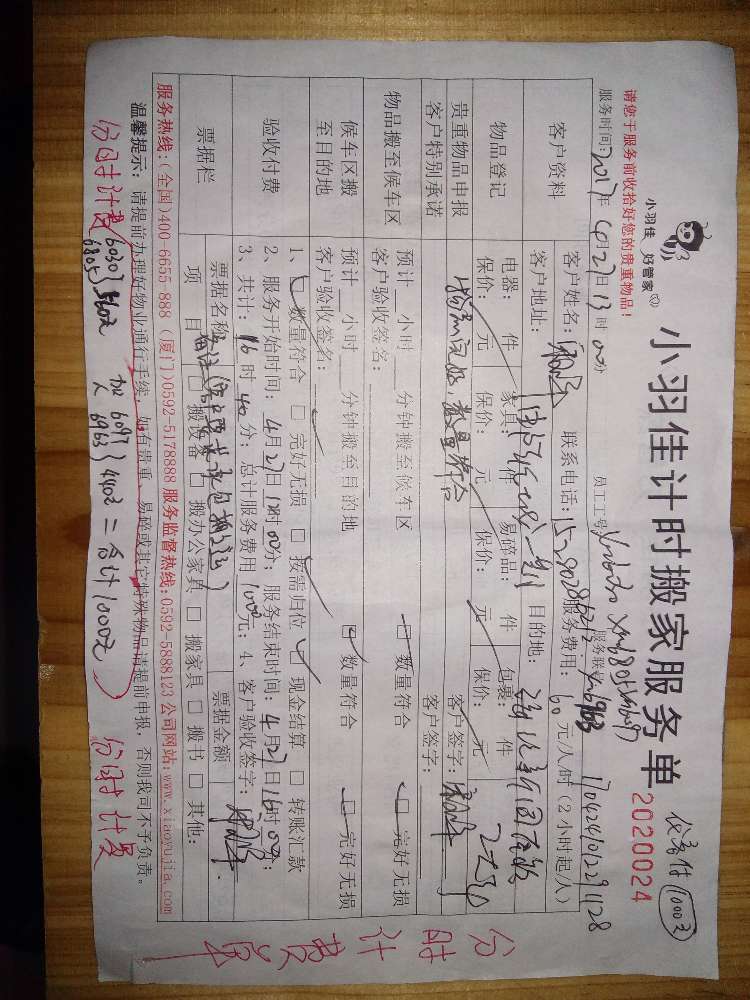 小羽佳 好管家
小羽佳计时搬家服务单
2020024
代客付 1000元
请您于服务前收拾好您的贵重物品!
服务时间: 2017年 4月27日 13时 00分 员工工号 服务联系
客户资料
客户姓名: 联系电话: 服务费用: 60 元/人/时 (2小时起/人)
客户地址: 目的地:
物品登记
电器: 件 家具: 件 易碎品: 件 包裹: 件
保价: 元 保价: 元 保价: 元 保价: 元
贵重物品申报
客户签字:
客户特别承诺
物品完好,数量符合
客户签字:
物品搬至候车区
预计 小时 分钟搬至候车区 □ 数量符合 □ 完好无损
客户验收签名:
候车区搬至目的地
预计 小时 分钟搬至目的地 □ 数量符合 □ 完好无损
客户验收签名:
验收付费
1、□ 数量符合 □ 完好无损 □ 按需归位 □ 现金结算 □ 转账汇款
2、服务开始时间: 4月27日 时00分; 服务结束时间: 4月27日16时00分;
3、共计: 16时40分; 总计服务费用 1000元; 4、客户验收签字:
票据栏
票据名称 票据金额
项 目 □ 搬设备 □ 搬办公家具 □ 搬家具 □ 搬书 □ 其他:
服务热线:(全国)400-6655-888 (厦门)0592-5178888 服务监督热线:0592-5888123 公司网站:www.xiaoyujia.com
温馨提示: 请提前办理好物业通行手续,如有贵重、易碎或其它特殊物品请提前申报,否则我司不予负责。
分时计费 6030 6805 560元 加 6097 6963 440元 = 合计1000元 分时计费
分时计费单